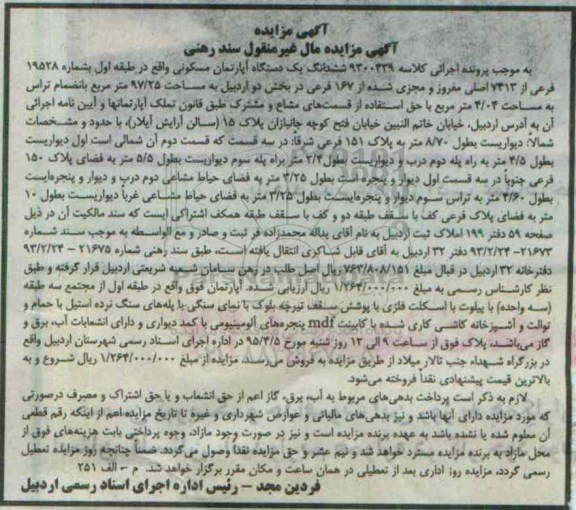 آگهی مزایده
آگهی مزایده مال غیرمنقول سند رهنی
به موجب پرونده اجرائی کلاسه ۹۳۰۰۳۳۹ ششدانگ یک دستگاه آپارتمان مسکونی واقع در طبقه اول بشماره ۱۹۵۲۸
فرعی از ۷۴۱۳ اصلی مفروز و مجزی شده از ۱۶۷ فرعی در بخش دو اردبیل به مساحت ۹۷/۲۵ متر مربع بانضمام تراس
به مساحت ۴/۰۴ متر مربع با حق استفاده از قسمت‌های مشاع و مشترک طبق قانون تملک آپارتمانها و آیین نامه اجرائی
آن به آدرس اردبیل، خیابان خاتم النبین خیابان فتح کوچه جانبازان پلاک ۱۵ (سالن آرایش آیلار)، با حدود و مشخصات
شمالاً: دیواریست بطول ۸/۷۰ متر به پلاک ۱۵۱ فرعی شرقاً: در سه قسمت که قسمت دوم آن شمالی است اول دیواریست
بطول ۴/۵ متر به راه پله دوم درب و دیواریست بطول ۲/۴ متر براه پله سوم دیواریست بطول ۵/۵ متر به فضای پلاک ۱۵۰
فرعی جنوباً در سه قسمت اول دیوار و پنجره‌ست بطول ۳/۲۵ متر به فضای حیاط مشاعی دوم درب و دیوار و پنجره‌ایست
بطول ۴/۶۰ متر به تراس سوم دیوار و پنجره‌ایست بطول ۳/۲۵ متر به فضای حیاط مشاعی غرباً دیواریست بطول ۱۰
متر به فضای پلاک فرعی کف با سقف طبقه دو و کف با سقف طبقه همکف اشتراکی ایست که سند مالکیت آن در ذیل
صفحه ۵۹ دفتر ۱۹۹ املاک ثبت اردبیل به نام آقای یداله محمدزاده فر ثبت و صادر و مع الواسطه به موجب سند شماره
۲۱۶۷۳- ۹۳/۲/۲۴ دفتر ۳۲ اردبیل به آقای قابل شناکری انتقال یافته است، طبق سند رهنی شماره ۲۱۶۷۵ – ۹۳/۲/۲۴
دفترخانه ۳۲ اردبیل در قبال مبلغ ۷۶۳/۸۰۸/۱۵۱ ریال اصل طلب در رهن بانک سامان شعبه شریعتی اردبیل قرار گرفته و طبق
نظر کارشناس رسمی به مبلغ ۱/۲۶۴/۰۰۰/۰۰۰ ریال ارزیابی شده. آپارتمان فوق واقع در طبقه اول از مجتمع سه طبقه
(سه واحده) با پیلوت با اسکلت فلزی با پوشش سقف تیرچه بلوک با نمای سنگی با پله‌های سنگ نرده استیل با حمام و
توالت و آشپزخانه کاشی کاری شده با کابینت mdf پنجره‌های آلومینیومی با کمد دیواری و دارای انشعابات آب، برق و
گاز می‌باشد، پلاک فوق از ساعت ۹ الی ۱۲ روز شنبه مورخ ۹۵/۴/۵ در اداره اجرای اسناد رسمی شهرستان اردبیل واقع
در بزرگراه شهداء جنب تالار میلاد از طریق مزایده به فروش می‌رسد. مزایده از مبلغ ۱/۲۶۴/۰۰۰/۰۰۰ ریال شروع و به
بالاترین قیمت پیشنهادی نقداً فروخته می‌شود.
لازم به ذکر است پرداخت بدهی‌های مربوط به آب، برق، گاز اعم از حق انشعاب و یا حق اشتراک و مصرف درصورتی
که مورد مزایده دارای آنها باشد و نیز بدهی‌های مالیاتی و عوارض شهرداری و غیره تا تاریخ مزایده اعم از اینکه رقم قطعی
آن معلوم شده یا نشده باشد به عهده برنده مزایده است و نیز در صورت وجود مازاد، وجوه پرداختی بابت هزینه‌های فوق از
محل مازاد به برنده مزایده مسترد خواهد شد و نیم عشر و حق مزایده نقداً وصول می‌گردد. ضمناً چنانچه روز مزایده تعطیل
رسمی گردد، مزایده روز اداری بعد از تعطیلی در همان ساعت و مکان مقرر برگزار خواهد شد. م – الف ۲۵۱
فردین مجد – رئیس اداره اجرای اسناد رسمی اردبیل